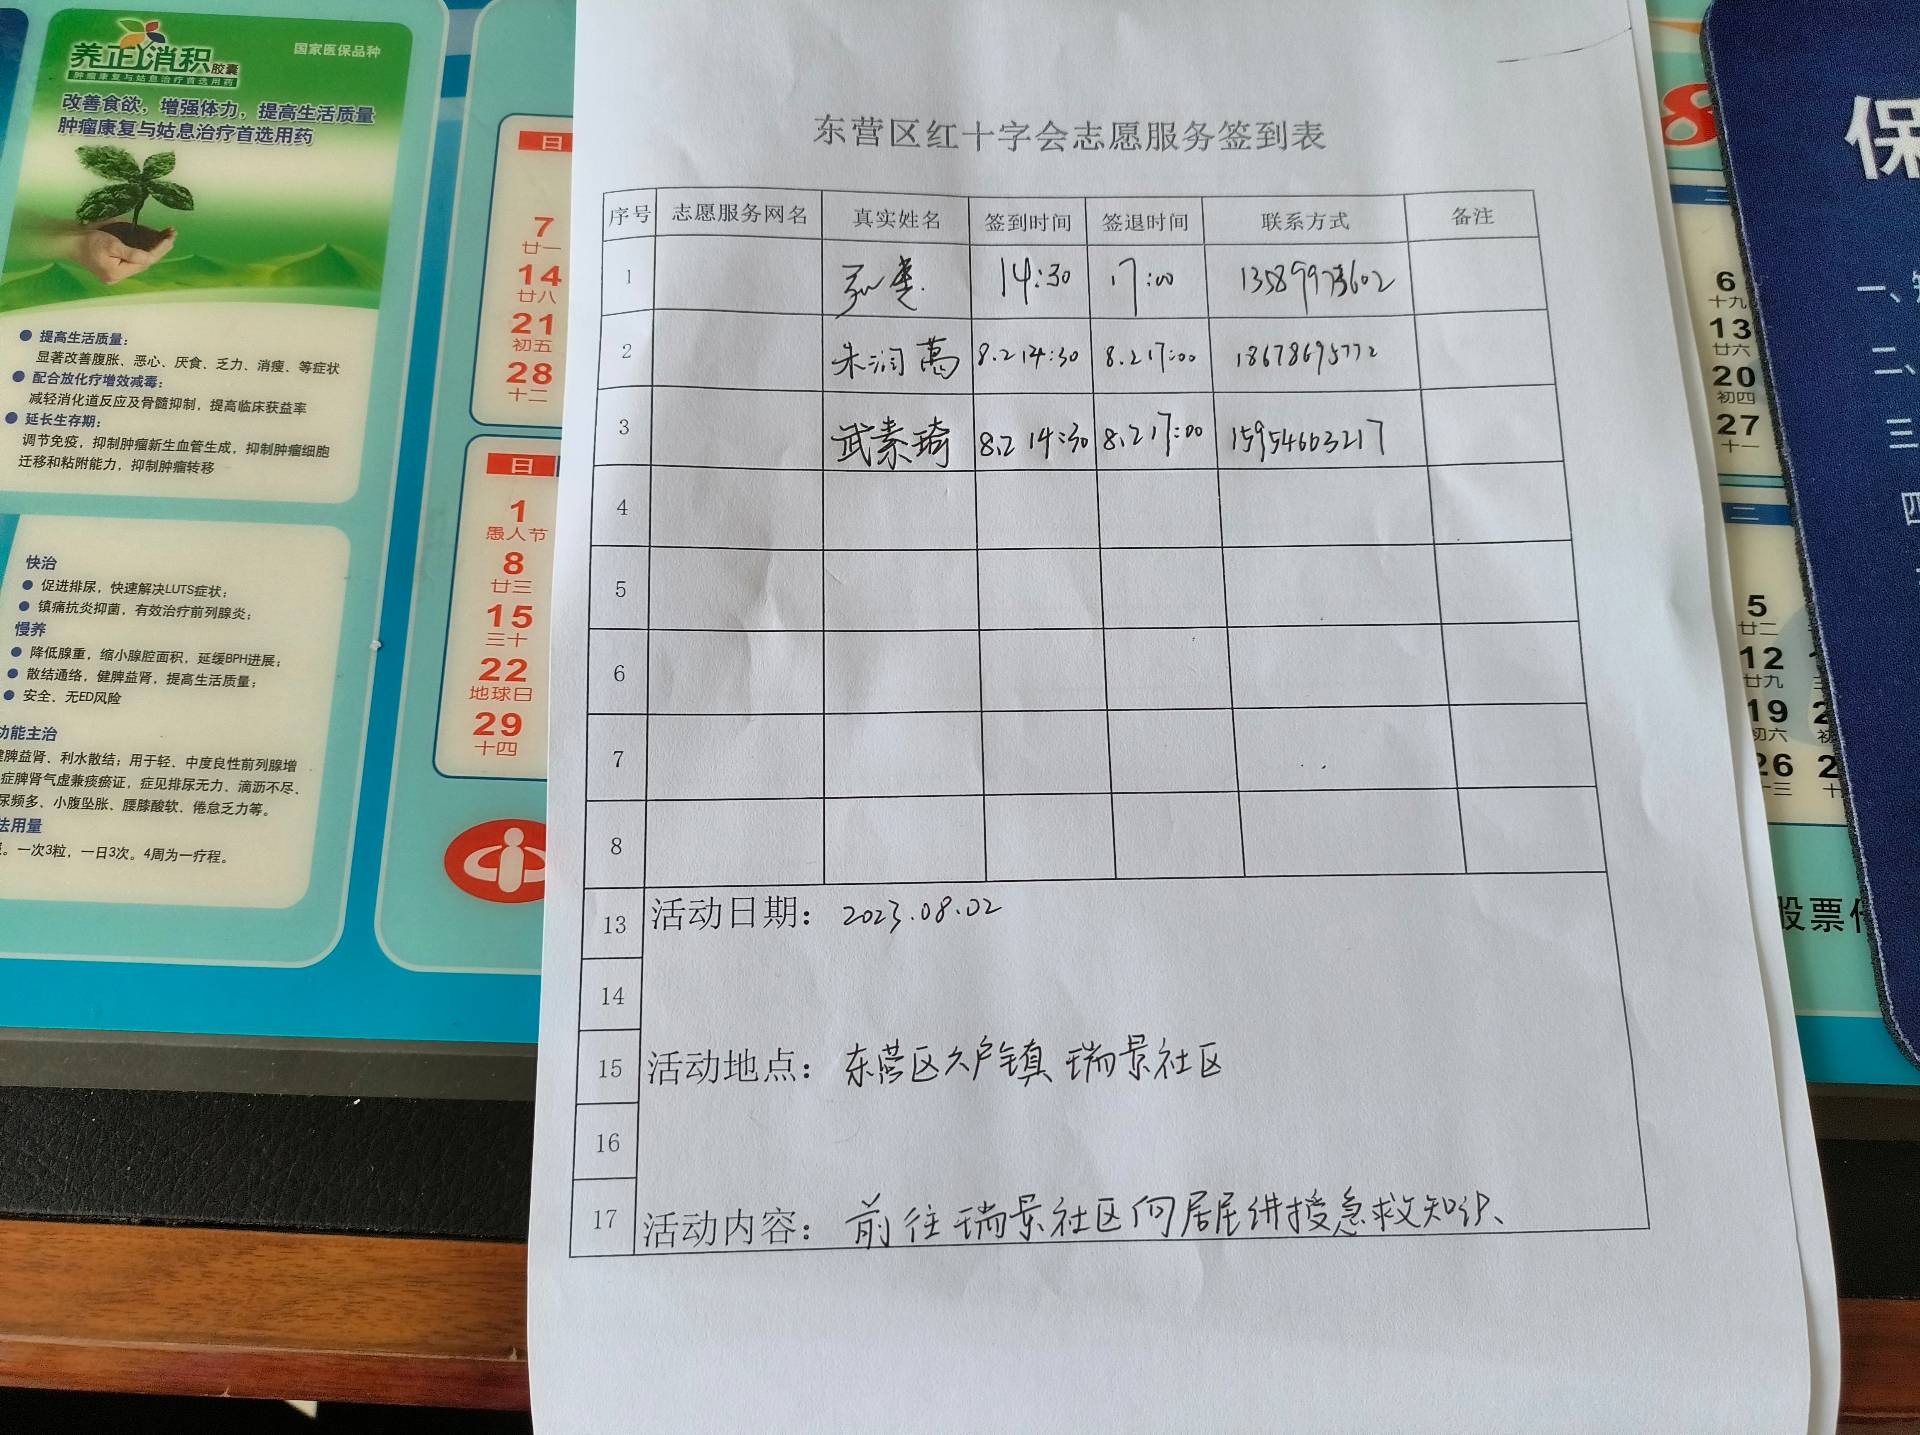 养正消积胶囊
肿瘤康复与姑息治疗首选用药
国家医保品种
改善食欲，增强体力，提高生活质量
肿瘤康复与姑息治疗首选用药
提高生活质量：
显著改善腹胀、恶心、厌食、乏力、消瘦、等症状
配合放化疗增效减毒：
减轻消化道反应及骨髓抑制，提高临床获益率
延长生存期：
调节免疫，抑制肿瘤新生血管生成，抑制肿瘤细胞
迁移和粘附能力，抑制肿瘤转移
快治
促进排尿，快速解决LUTS症状；
镇痛抗炎抑菌，有效治疗前列腺炎；
慢养
降低腺重，缩小腺腔面积，延缓BPH进展；
散结通络，健脾益肾，提高生活质量；
安全、无ED风险
功能主治
健脾益肾、利水散结；用于轻、中度良性前列腺增
症脾肾气虚兼痰瘀证，症见排尿无力、滴沥不尽、
尿频多、小腹坠胀、腰膝酸软、倦怠乏力等。
法用量
。一次3粒，一日3次。4周为一疗程。
日
7
廿一
14
廿八
21
初五
28
十二
日
1
愚人节
8
廿三
15
三十
22
地球日
29
十四
东营区红十字会志愿服务签到表
序号 志愿服务网名 真实姓名 签到时间 签退时间 联系方式 备注
1 14:30 17:00
2 朱润 8.2 14:30 8.2 17:00 18678695772
3 武素琦 8.2 14:30 8.2 17:00 15954603217
4
5
6
7
8
13 活动日期：2023.08.02
14
15 活动地点：东营区六户镇瑞景社区
16
17 活动内容：前往瑞景社区向居民讲授急救知识、
8
二
6
十九
13
廿六
20
初四
27
十一
二
5
廿二
12
廿九
19
初六
26
十三
股票
保
一、
二、
三
四